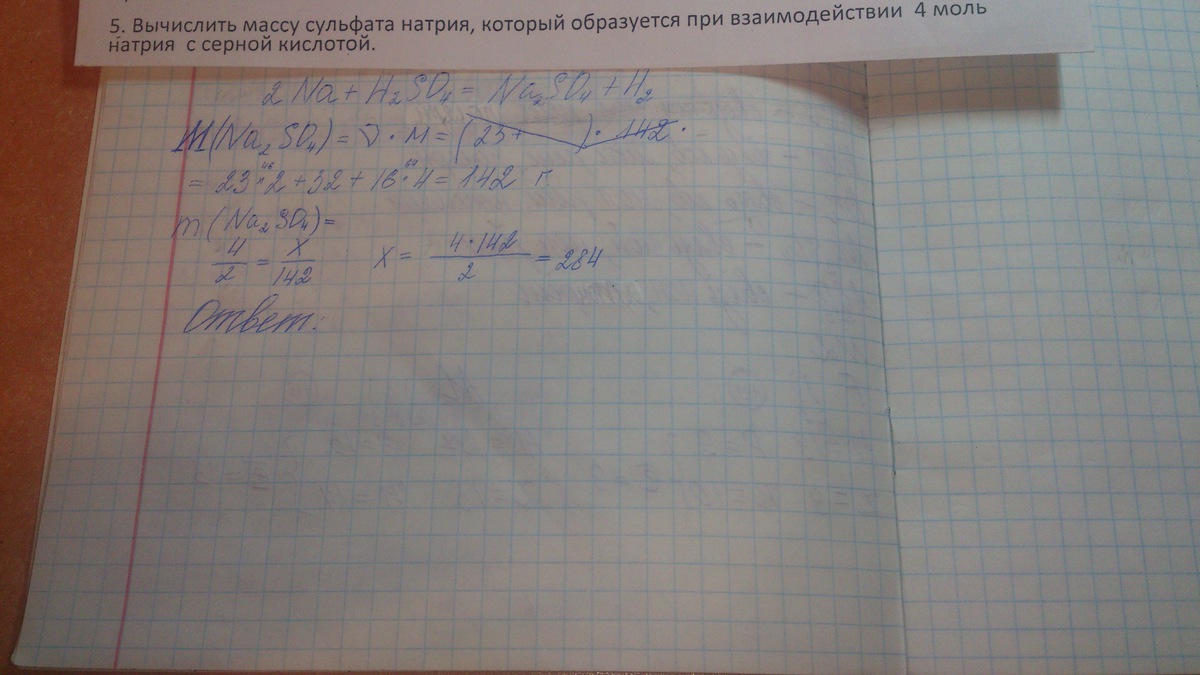 5. Вычислить массу сульфата натрия, который образуется при взаимодействии 4 моль
натрия с серной кислотой.
2 Na + H₂SO₄ = Na₂SO₄ + H₂
M(Na₂SO₄) = ν · M = (23+ ) · 142 ·
= 23 · 2 + 32 + 16 · 4 = 142 г
46 64
m(Na₂SO₄) =
4/2 = x/142 x = 4·142/2 = 284
Ответ: